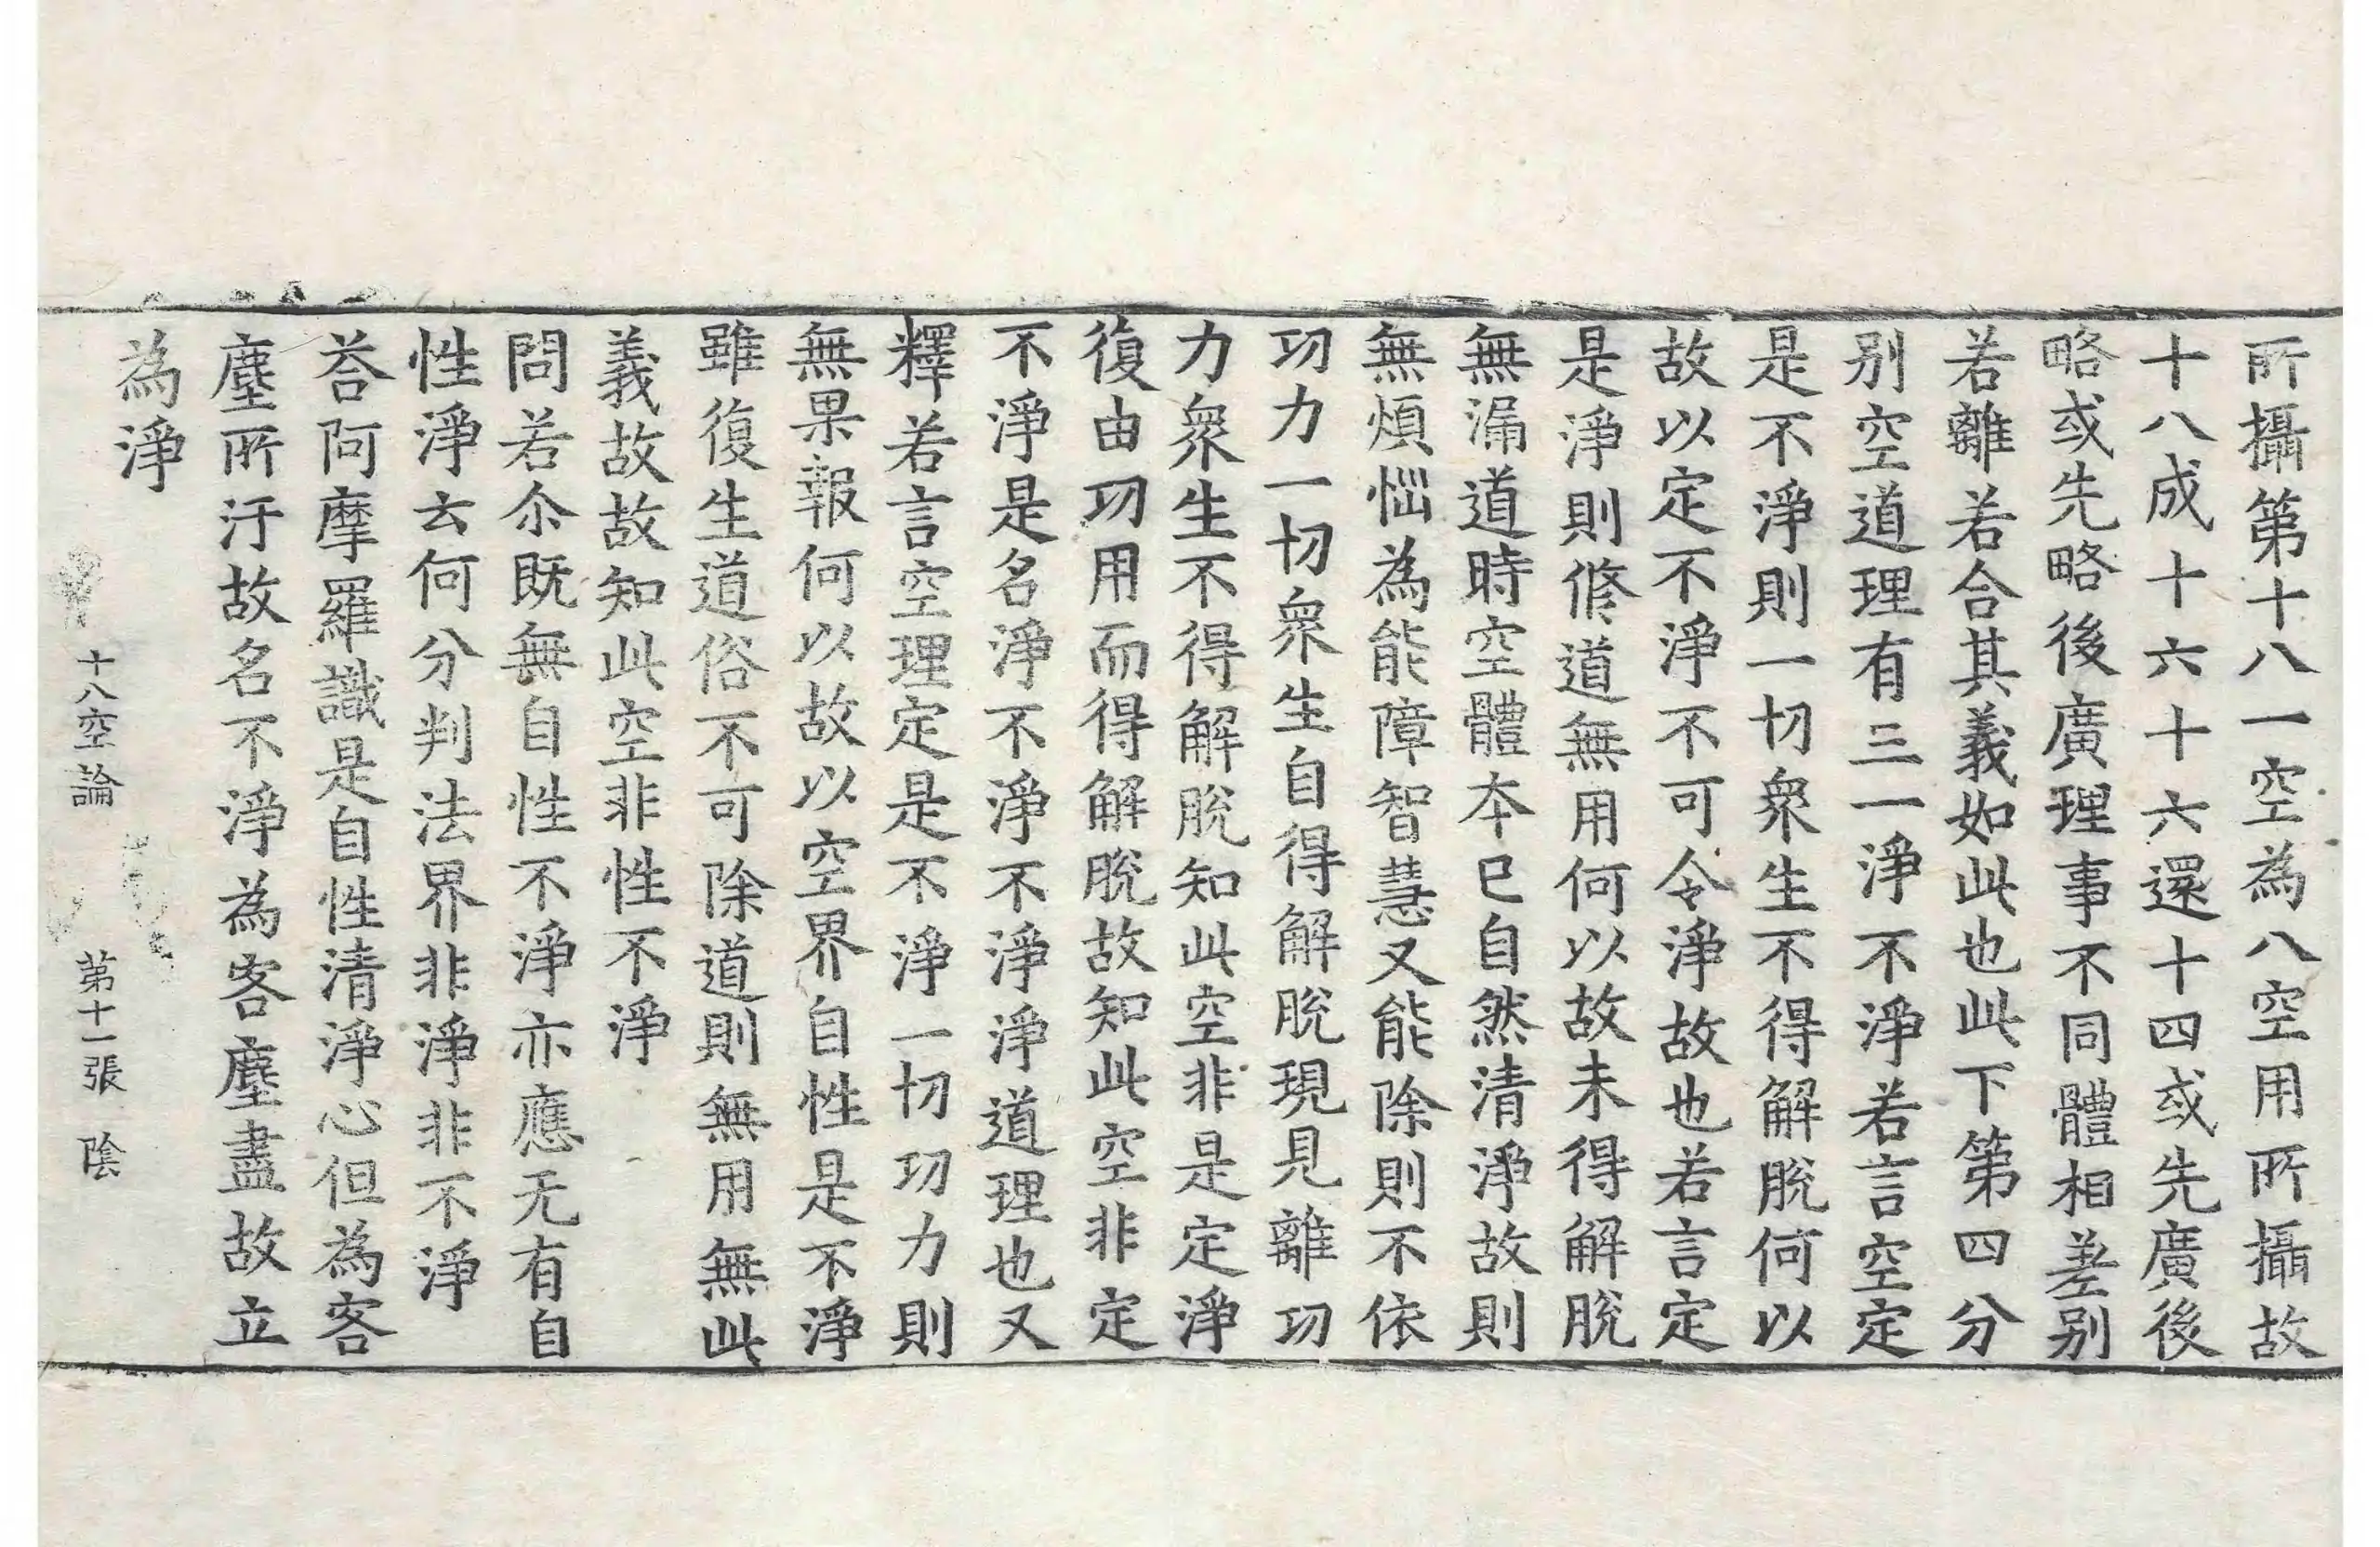 所攝第十八一空為八空用所攝故
十八成十六十六還十四或先廣後
略或先略後廣理事不同體相差別
若離若合其義如此也此下第四分
別空道理有三一淨不淨若言空定
是不淨則一切衆生不得解脫何以
故以定不淨不可令淨故也若言定
是淨則修道無用何以故未得解脫
無漏道時空體本已自然清淨故則
無煩惱為能障智慧又能除則不依
功力一切衆生自得解脫現見離功
力衆生不得解脫知此空非是定淨
復由功用而得解脫故知此空非定
不淨是名淨不淨不淨淨道理也又
釋若言空理定是不淨一切功力則
無果報何以故以空界自性是不淨
雖復生道俗不可除道則無用無此
義故故知此空非性不淨
問若尒既無自性不淨亦應无有自
性淨云何分判法界非淨非不淨
荅阿摩羅識是自性清淨心但為客
塵所汙故名不淨為客塵盡故立
為淨
十八空論 第十一張 陰